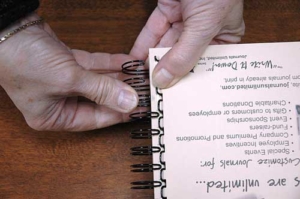 s are unlimited...
Customize Journals for:
• Special Events
• Employee Incentives
• Company Premiums and Promotions
• Fund-raisers
• Event Sponsorships
• Gifts to customers or employees
• Charitable Donations
journalsunlimited.com
journals already in print.
"Write it Down!"
Journals Unlimited, Inc.